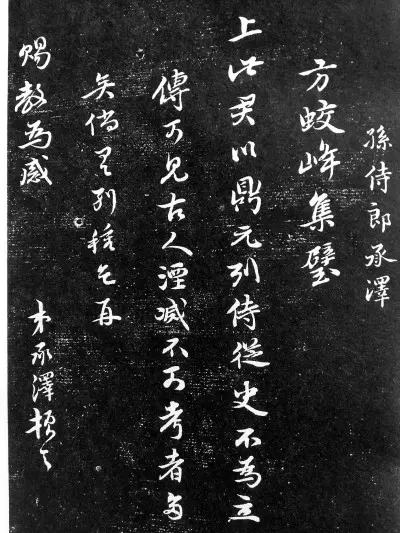 孫侍郎承澤
方蛟峰集璧
上此君以鼎元列侍從史不為立
傳可見古人湮滅不可考者多
矣倘別種乞再
賜教為感
弟承澤頓首